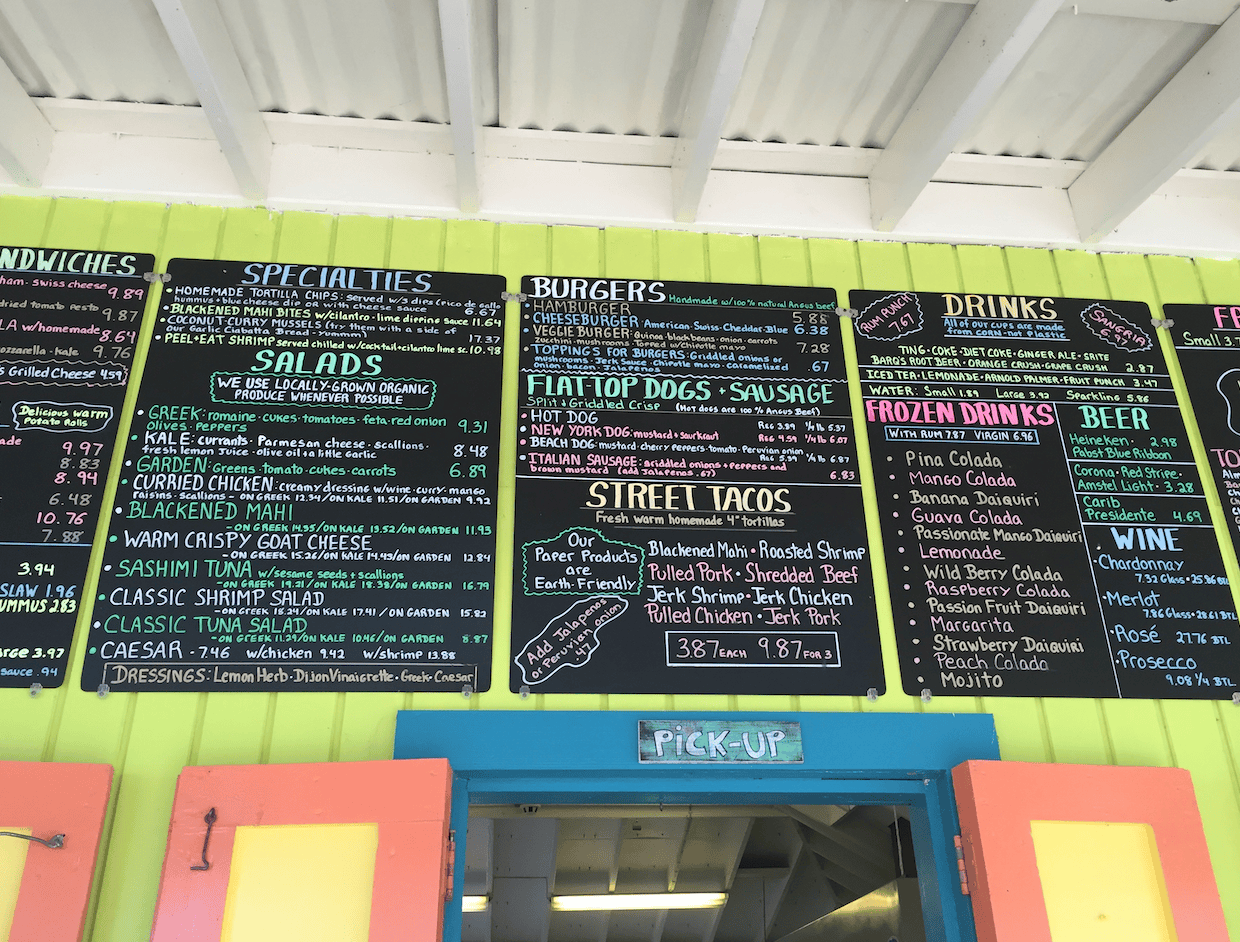 NDWICHES
ham · swiss cheese 9.89
dried tomato pesto
9.87
LA w/homemade
8.64
mozzarella · kale 9.76
s Grilled Cheese 4.59
Delicious warm
Potato Rolls
ade 9.97
8.83
8.94
6.48
10.76
7.88
3.94
SLAW 1.96
UMMUS 2.83
arge 3.97
sauce .94
SPECIALTIES
• HOMEMADE TORTILLA CHIPS: served w/3 dips (Pico de gallo
hummus + blue cheese dip or with cheese sauce 6.67
• BLACKENED MAHI BITES w/cilantro · lime dipping sauce 11.64
• COCONUT-CURRY MUSSELS (try them with a side of
our Garlic Ciabatta Bread - yummm!) 17.37
• PEEL + EAT SHRIMP served chilled w/cocktail + cilantro lime sc. 10.98
SALADS
WE USE LOCALLY-GROWN ORGANIC
PRODUCE WHENEVER POSSIBLE
• GREEK: romaine · cukes · tomatoes · feta · red onion
olives · peppers 9.31
• KALE: currants · Parmesan cheese · scallions ·
fresh lemon juice · olive oil + a little garlic 8.48
• GARDEN: Greens · tomato · cukes · carrots 6.89
• CURRIED CHICKEN: creamy dressing w/wine · curry · mango
raisins · scallions - ON GREEK 12.34/ON KALE 11.51/ON GARDEN 9.92
• BLACKENED MAHI
- ON GREEK 14.35/ON KALE 13.52/ON GARDEN 11.93
• WARM CRISPY GOAT CHEESE
- ON GREEK 15.26/ON KALE 14.43/ON GARDEN 12.84
• SASHIMI TUNA w/sesame seeds + scallions
- ON GREEK 19.21/ON KALE 18.38/ON GARDEN 16.79
• CLASSIC SHRIMP SALAD
- ON GREEK 18.24/ON KALE 17.41/ON GARDEN 15.82
• CLASSIC TUNA SALAD
- ON GREEK 11.29/ON KALE 10.46/ON GARDEN 8.87
• CAESAR - 7.46 w/chicken 9.42 w/shrimp 13.88
DRESSINGS: Lemon Herb · Dijon Vinaigrette · Greek · Caesar
BURGERS Handmade w/100% natural Angus beef
• HAMBURGER 5.88
• CHEESEBURGER · American · Swiss · Cheddar · Blue 6.38
• VEGGIE BURGER: Quinoa · black beans · onion · carrots
zucchini · mushrooms · Topped w/Chipotle mayo 7.28
• TOPPINGS FOR BURGERS: Griddled onions or
mushrooms · Jerk Sauce · Chipotle mayo · caramelized
onion · bacon · Jalapenos .67
FLAT TOP DOGS + SAUSAGE
Split & Griddled Crisp (Hot dogs are 100% Angus Beef)
• HOT DOG Reg 3.89 1/4 lb 5.37
• NEW YORK DOG: mustard + saurkraut Reg 4.59 1/4 lb 6.07
• BEACH DOG · mustard · cherry peppers · tomato · Peruvian onion
Reg 5.39 1/4 lb 6.87
• ITALIAN SAUSAGE: griddled onions + peppers and
brown mustard (add Jalapenos .67) 6.83
STREET TACOS
Fresh warm homemade 4" tortillas
Our
Paper Products
are
Earth-Friendly
Blackened Mahi · Roasted Shrimp
Pulled Pork · Shredded Beef
Jerk Shrimp · Jerk Chicken
Pulled Chicken · Jerk Pork
Add Jalapenos
or Peruvian onion
.47
3.87 EACH 9.87 FOR 3
RUM PUNCH
7.67
DRINKS
All of our cups are made
from CORN - not plastic
SANGRIA
6.97
TING · COKE · DIET COKE · GINGER ALE · SRITE
BARQ'S ROOT BEER · ORANGE CRUSH · GRAPE CRUSH 2.87
ICED TEA · LEMONADE · ARNOLD PALMER · FRUIT PUNCH 3.47
WATER: Small 1.89 Large 3.92 Sparkling 5.86
FROZEN DRINKS
WITH RUM 7.87 VIRGIN 6.96
• Pina Colada
• Mango Colada
• Banana Daiquiri
• Guava Colada
• Passionate Mango Daiquiri
• Lemonade
• Wild Berry Colada
• Raspberry Colada
• Passion Fruit Daiquiri
• Margarita
• Strawberry Daiquiri
• Peach Colada
• Mojito
BEER
Heineken · 2.98
Pabst Blue Ribbon
Corona · Red Stripe ·
Amstel Light · 3.28
Carib
Presidente 4.69
WINE
• Chardonnay
7.32 Glass · 25.86 BTL
• Merlot
7.86 Glass · 28.61 BTL
• Rosé 27.76 BTL
• Prosecco
9.08 1/4 BTL
FR
Small 3.7
TO
PiCK-UP